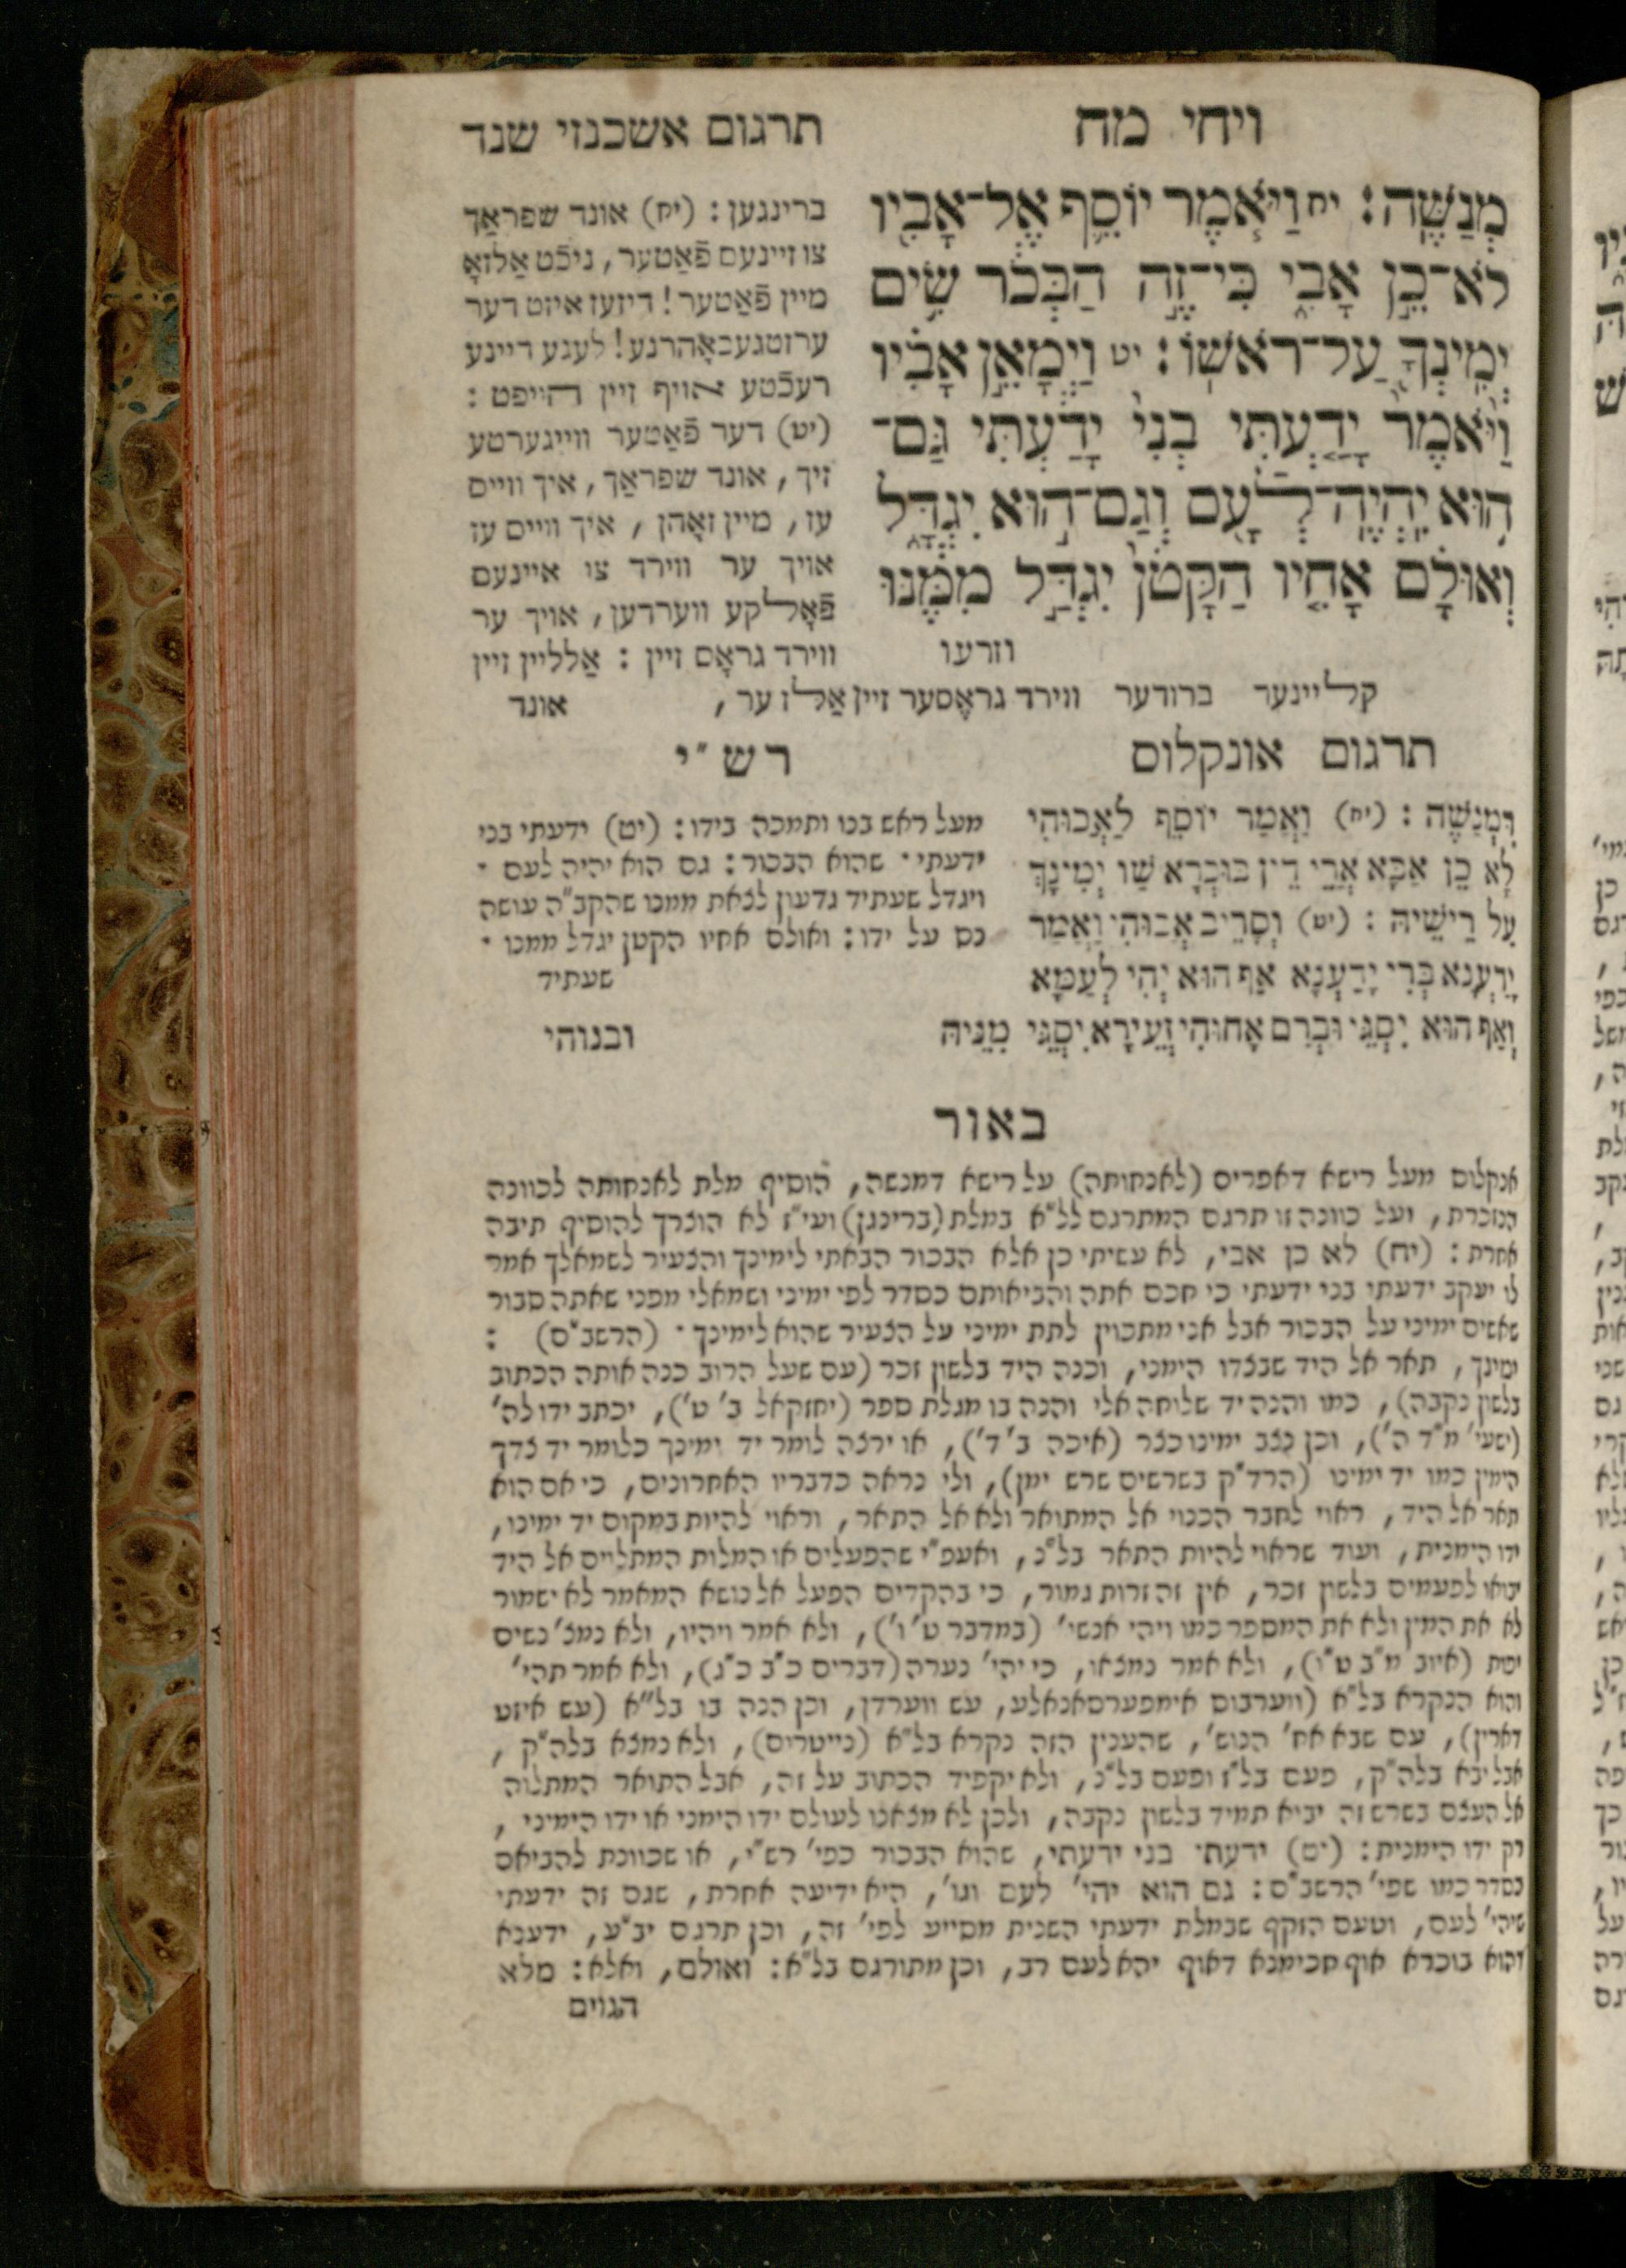 ויחי מח
תרגום אשכנזי שנד
מְנַשֶּׁה׃ יח וַיֹּאמֶר יוֹסֵף אֶל־אָבִיו
לֹא־כֵן אָבִי כִּי־זֶה הַבְּכֹר שִׂים
יְמִינְךָ עַל־רֹאשׁוֹ׃ יט וַיְמָאֵן אָבִיו
וַיֹּאמֶר יָדַעְתִּי בְנִי יָדַעְתִּי גַּם־
הוּא יִהְיֶה־לְּעָם וְגַם־הוּא יִגְדָּל
וְאוּלָם אָחִיו הַקָּטֹן יִגְדַּל מִמֶּנּוּ
וזרעו
ברינגען : (יח) אונד שפראַך
צו זיינעם פֿאַטער, ניכֿט אַלזאָ
מיין פֿאַטער! דיזעז איזט דער
ערזטגעבאָהרנע! לעגע דיינע
רעכֿטע אויף זיין הויפט :
(יט) דער פֿאַטער ווייגערטע
זיך, אונד שפראַך, איך ווייס
עז, מיין זאָהן, איך ווייס עז
אויך ער ווירד צו איינעם
פֿאָלקע ווערדען, אויך ער
ווירד גראָס זיין : אַלליין זיין
קליינער ברודער ווירד גראָסער זיין אַלז ער, אונד
תרגום אונקלוס
דִּמְנַשֶּׁה : (יח) וַאֲמַר יוֹסֵף לַאֲבוּהִי
לָא כֵן אַבָּא אֲרֵי דֵין בּוּכְרָא שַׁו יְמִינָךְ
עַל רֵישֵׁיהּ : (יט) וְסָרֵיב אֲבוּהִי וַאֲמַר
יָדַעְנָא בְּרִי יָדַעְנָא אַף הוּא יְהִי לְעַמָּא
וְאַף הוּא יִסְגֵּי וּבְרַם אָחוּהִי זְעֵירָא יִסְגֵּי מִנֵּיהּ ובנוהי
רש"י
מעל ראש בנו ותמכה בידו: (יט) ידעתי בני
ידעתי · שהוא הבכור: גם הוא יהיה לעם ·
ויגדל שעתיד גדעון לצאת ממנו שהקב"ה עושה
נס על ידו: ואולם אחיו הקטן יגדל ממנו ·
שעתיד
באור
אנקלוס מעל רישא דאפרים (לאנחותה) על רישא דמנשה, הוסיף מלת לאנחותה לכוונה
הנזכרת, ועל כוונה זו תרגם המתרגם לל"א במלת (ברינגן) ועי"ז לא הוצרך להוסיף תיבה
אחרת: (יח) לא כן אבי, לא עשיתי כן אלא הבכור הבאתי לימינך והצעיר לשמאלך אמר
לו יעקב ידעתי בני ידעתי כי חכם אתה והביאותם כסדר לפי ימיני ושמאלי מפני שאתה סבור
שאשים ימיני על הבכור אבל אני מתכוין לתת ימיני על הצעיר שהוא לימינך · (הרשב"ם) :
ימינך, תאר אל היד שבצדו הימני, וכנה היד בלשון זכר (עם שעל הרוב כנה אותה הכתוב
בלשון נקבה), כמו והנה יד שלוחה אלי והנה בו מגלת ספר (יחזקאל ב' ט'), יכתב ידו לה'
(ישעי' מ"ד ה'), וכן נצב ימינו כצר (איכה ב' ד'), או ירצה לומר יד ימינך כלומר יד צדך
הימין כמו יד ימינו (הרד"ק בשרשים שרש ימן), ולי נראה כדבריו האחרונים, כי אם הוא
תאר אל היד, ראוי לחבר הכנוי אל המתואר ולא אל התאר, וראוי להיות במקום יד ימינו,
ידו הימנית, ועוד שראוי להיות התאר בל"נ, ואעפ"י שהפעלים או המלות המתלוים אל היד
יבואו לפעמים בלשון זכר, אין זה זרות גמור, כי בהקדים הפעל אל נושא המאמר לא ישמור
לא את המין ולא את המספר כמו ויהי אנשי' (במדבר ט' ו'), ולא אמר ויהיו, ולא נמצ' נשים
יפות (איוב מ"ב ט"ו), ולא אמר נמצאו, כי יהי' נערה (דברים כ"ב כ"ג), ולא אמר תהי'
והוא הנקרא בל"א (ווערבום אימפערסאנאלע, עש ווערדן, וכן הנה בו בל"א (עש איזט
דארין), עם שבא אח' הנוש', שהענין הזה נקרא בל"א (נייטרים), ולא נמצא בלה"ק,
אבל יבא בלה"ק, פעם בל"ז ופעם בל"נ, ולא יקפיד הכתוב על זה, אבל התואר המתלוה
אל העצם בשרש זה יביא תמיד בלשון נקבה, ולכן לא מצאנו לעולם ידו הימני או ידו הימיני,
רק ידו הימנית: (יט) ידעתי בני ידעתי, שהוא הבכור כפי' רש"י, או שכוונת להביאם
כסדר כמו שפי' הרשב"ם: גם הוא יהי' לעם וגו', היא ידיעה אחרת, שגם זה ידעתי
שיהי' לעם, וטעם הזקף שבמלת ידעתי השנית מסייע לפי' זה, וכן תרגם יב"ע, ידענא
דהוא בוכרא אוף חכימנא דאוף יהא לעם רב, וכן מתורגם בל"א: ואולם, ואלא: מלא
הגוים